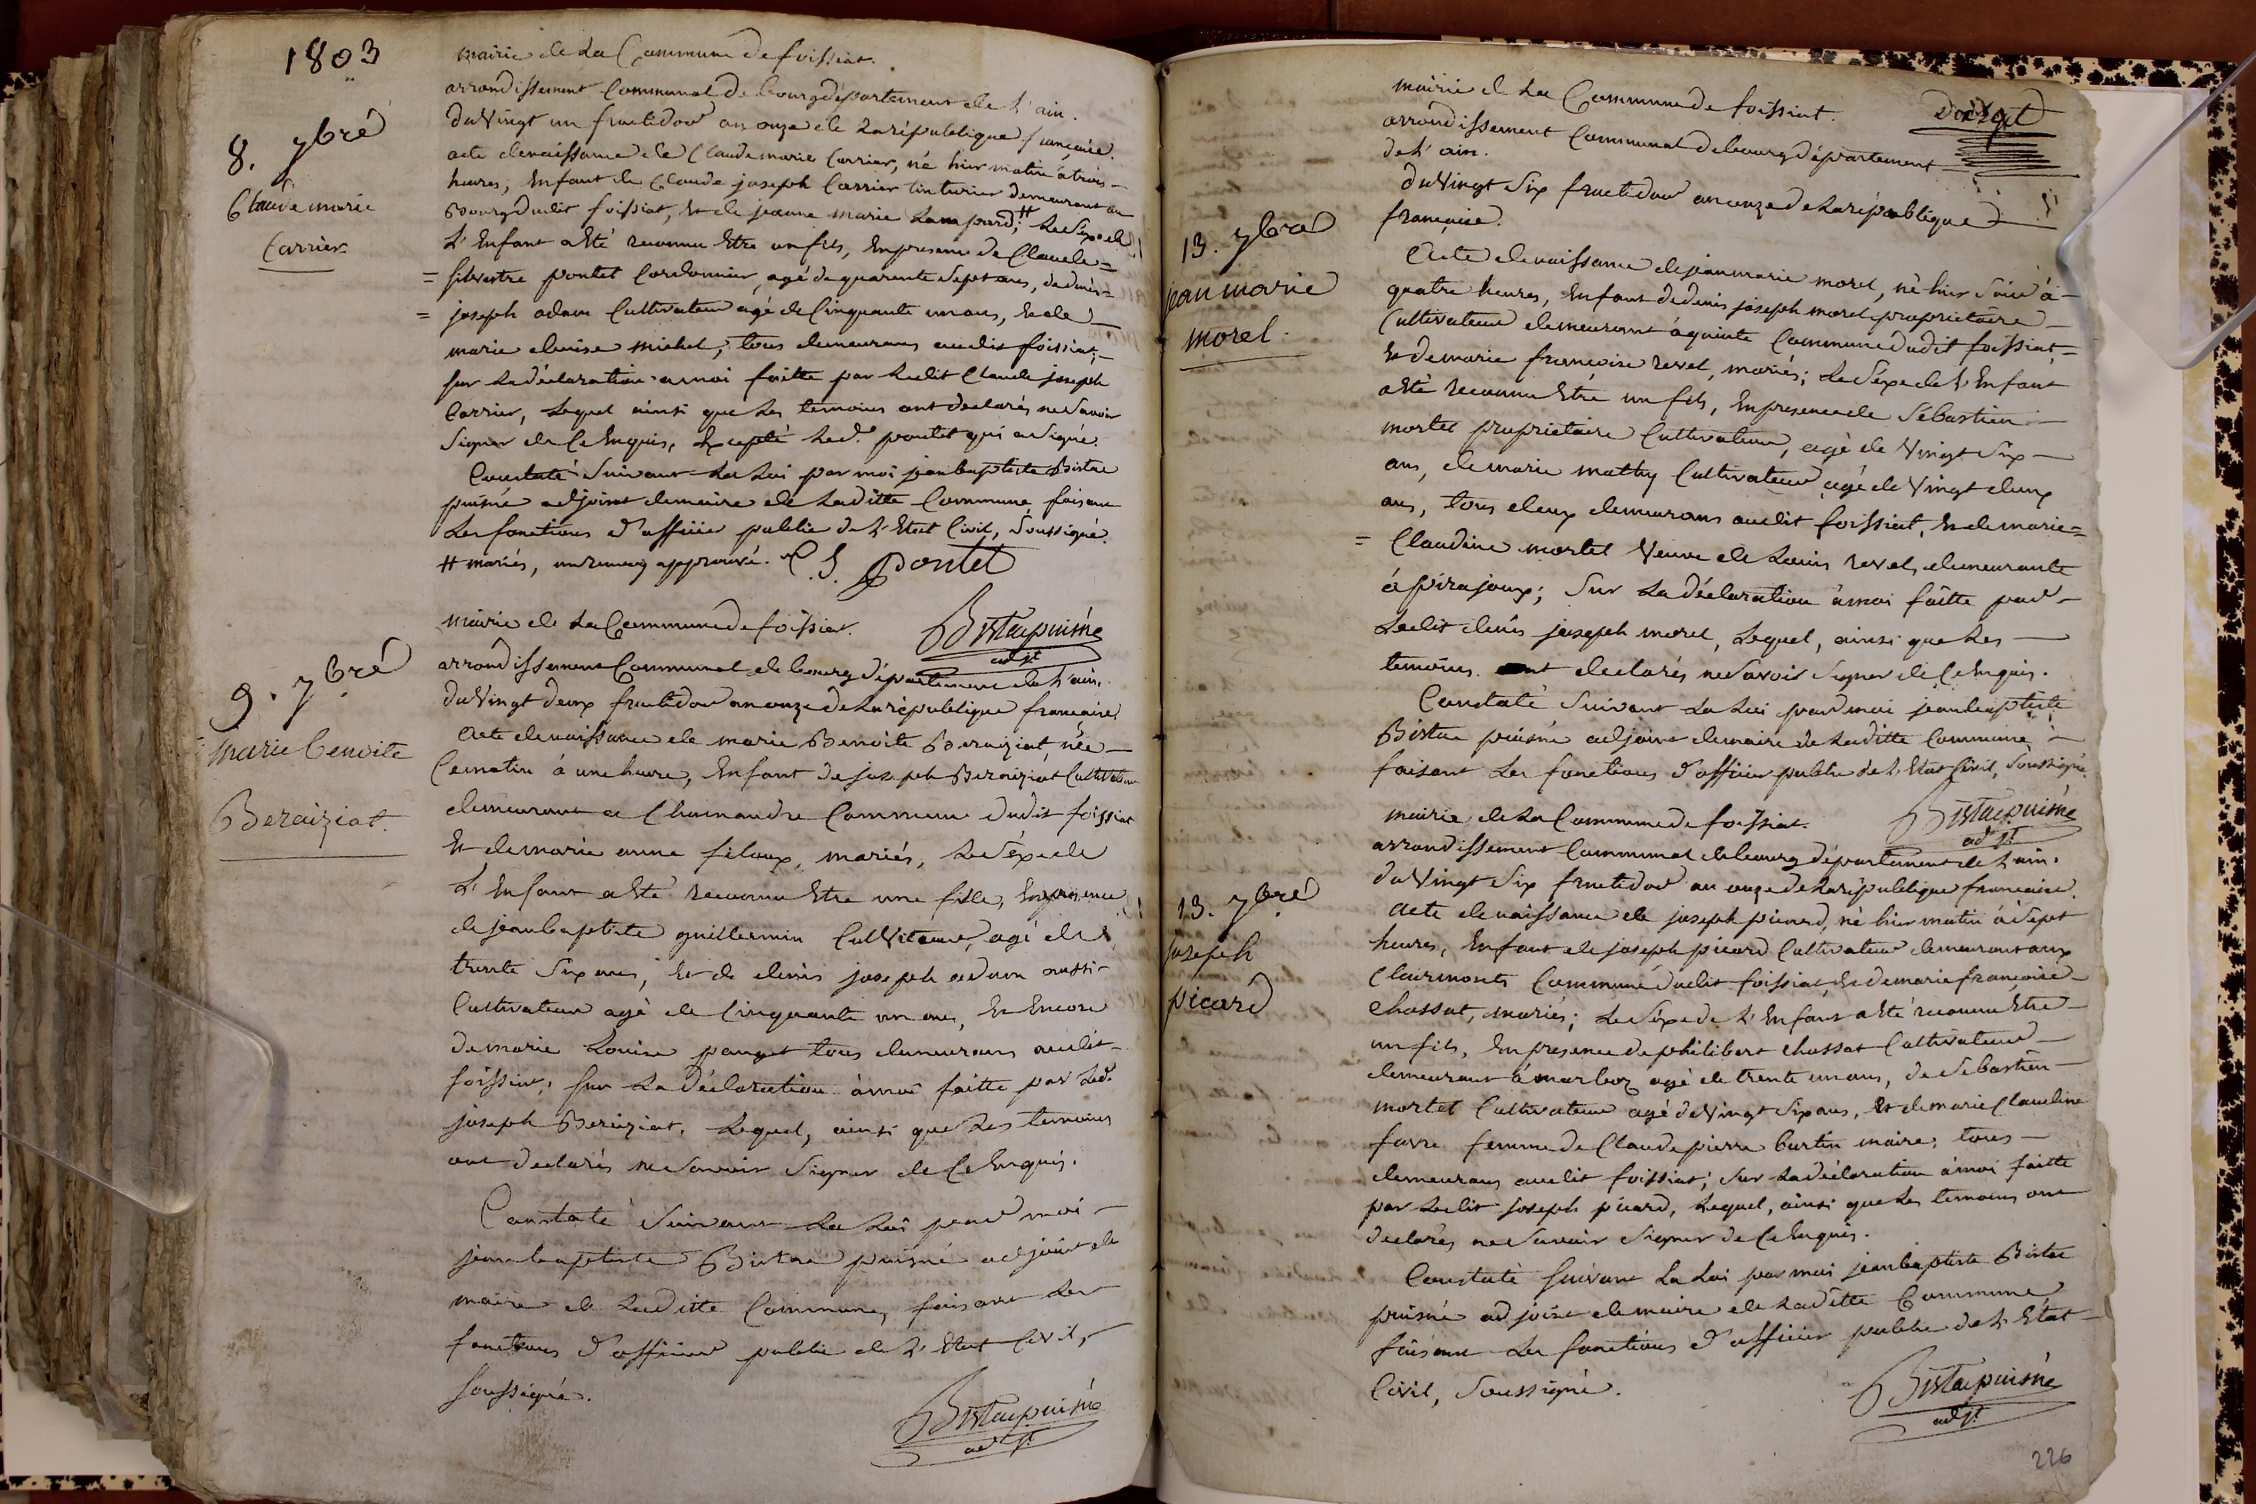 1803
mairie de la Commune de foissiat.
arrondissement Communal de bourg département de l'ain.
8. 7bre
du Vingt un fructidor an onze de la république française.
acte de naissance de Claude marie Carrier, né hier matin à trois
Claude marie
Carrier
heures, Enfant de Claude joseph Carrier tinturier demeurant au
Bourg dudit foissiat, Et de jeanne marie # Le Sexe de
L'Enfant a Eté reconnu Etre un fils, En presence de Claude =
= silvestre pontet Cordonnier, agé de quarante Sept ans, de denis =
= joseph adam Cultivateur agé de Cinquante un ans, Et de
marie denise michel, tous demeurans audit foissiat,
sur La déclaration a moi faitte par Ledit Claude joseph
Carrier, Lequel ainsi que Les temoins ont declarés ne Savoir
Signer de Ce Enquis, Excepté Led. pontet qui a Signé.
Constaté Suivant La Loi par moi jean baptiste Bistac
puisné adjoint de maire de Laditte Commune faisant
Les fonctions d'officier public de L'Etat Civil, Soussigné.
# mariés, un renvoy approuvé. C. S. Pontet
Bistac puisné
adjt
mairie de La Commune de foissiat.
arrondissement Communal de bourg département de L'ain.
9. 7bre
du Vingt deux fructidor an onze de La république française.
marie benoite
Beraiziat
Acte de naissance de marie Benoite Beraiziat née
Ce matin à une heure, Enfant de joseph Beraiziat Cultivateur
demeurant a Chamandre Commune dudit foissiat
Et de marie anne feloux, mariés, Le Sexe de
L'Enfant a Eté reconnu Etre une fille, En presence
de jean baptiste guillermin Cultivateur, agé de
trente Six ans, Et de denis joseph adam aussi
Cultivateur agé de Cinquante un ans, Et Encore
de marie Louise panget tous demeurans audit
foissiat, Sur La déclaration à moi faitte par Led.
joseph Beraiziat, Lequel, ainsi que Les temoins
ont declarés ne Savoir Signer de Ce Enquis.
Constaté Suivant La Loi par moi
jean baptiste Bistac puisné adjoint de
maire de Laditte Commune, faisant Les
fonctions d'officier public de L'Etat Civil,
Soussigné.
Bistac puisné
adjt
mairie de La Commune de foissiat.
arrondissement Communal de bourg département
de L'ain.
du Vingt Six fructidor an onze de La république
française.
13. 7bre
jean marie
morel
Acte de naissance de jean marie morel, né hier Soir à
quatre heures, Enfant de denis joseph morel proprietaire
Cultivateur demeurant à quinte Commune dudit foissiat =
Et de marie françoise revel, mariés; Le Sexe de L'Enfant
a Eté reconnu Etre un fils, En presence de Sébastien
mortel proprietaire Cultivateur, agé de Vingt Six
ans, de marie mathy Cultivateur agé de Vingt deux
ans, tous deux demeurans audit foissiat, Et de marie =
= Claudine mortel Veuve de Louis revel, demeurante
à pirajoux; Sur La déclaration à moi faitte par
Ledit denis joseph morel, Lequel, ainsi que Les
temoins ont declarés ne Savoir Signer de Ce Enquis.
Constaté Suivant La Loi par moi jean baptiste
Bistac puisné adjoint de maire de Laditte Commune
faisant Les fonctions d'officier public de L'Etat Civil, Soussigné.
Bistac puisné
adjt
mairie de La Commune de foissiat.
arrondissement Communal de bourg département de L'ain.
du Vingt Six fructidor an onze de La république française.
13. 7bre
joseph
picard
Acte de naissance de joseph picard, né hier matin à Sept
heures, Enfant de joseph picard Cultivateur demeurant aux
Clairmonts Commune dudit foissiat, Et de marie françoise
Chossat, mariés; Le Sexe de L'Enfant a Eté reconnu Etre
un fils, En presence de philibert chossat Cultivateur
demeurant à marboz agé de trente un ans, de Sebastien
mortel Cultivateur agé de Vingt Six ans, Et de marie Claudine
favre femme de Claude pierre burtin maire, tous
demeurans audit foissiat; Sur La déclaration à moi faitte
par Ledit joseph picard, Lequel, ainsi que Les temoins ont
declarés ne Savoir Signer de Ce Enquis.
Constaté Suivant La Loi par moi jean baptiste Bistac
puisné adjoint de maire de Laditte Commune
faisant Les fonctions d'officier public de L'Etat
Civil, Soussigné.
Bistac puisné
adjt
226